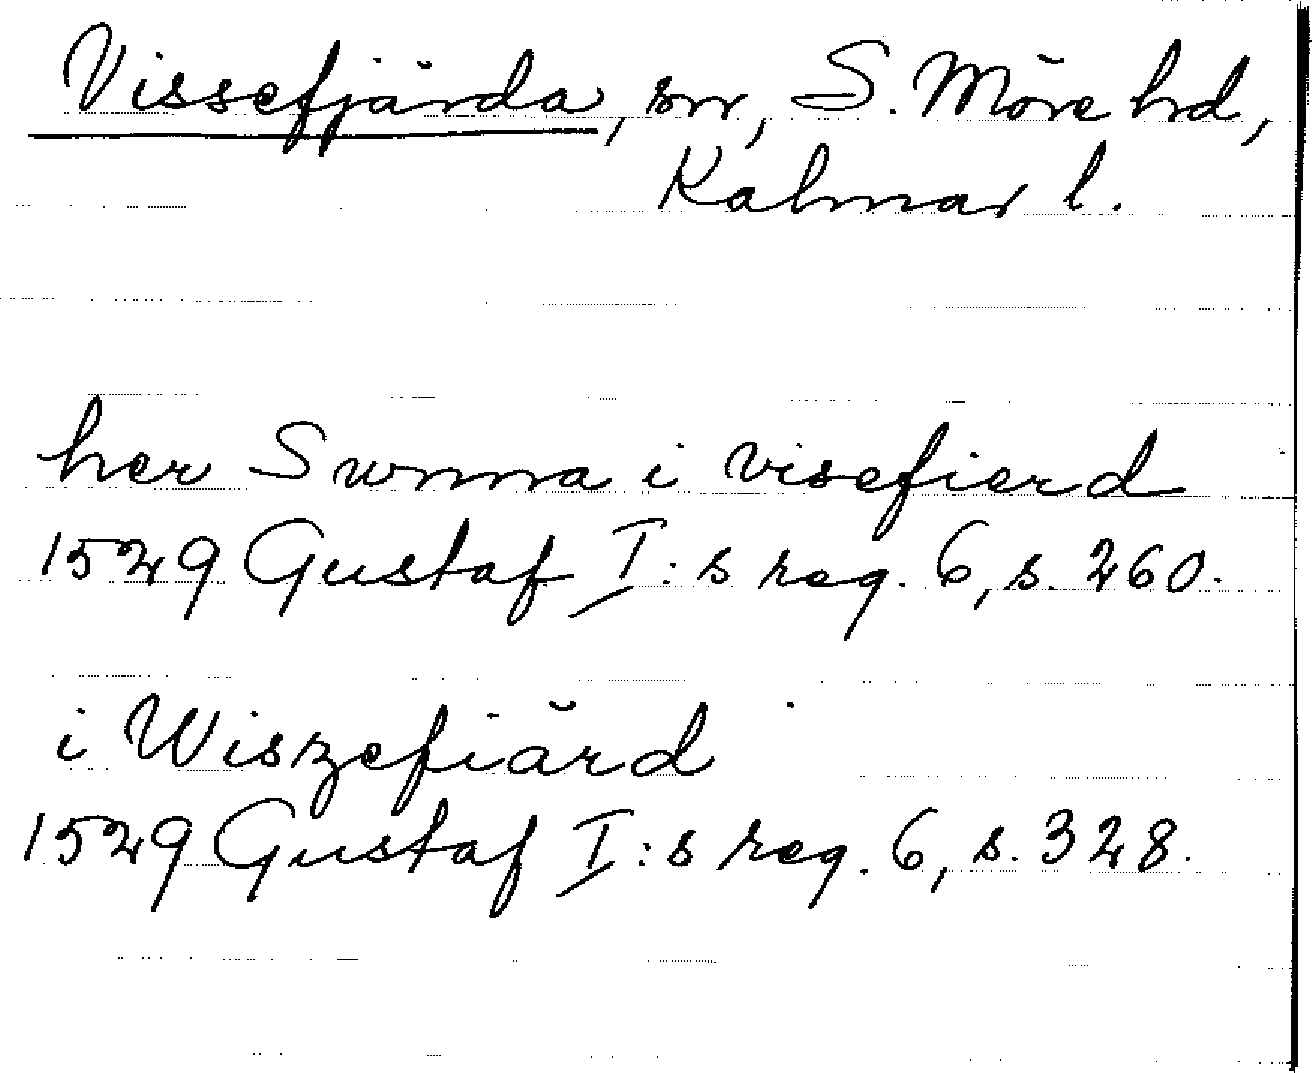 Vissefjärda, sn, S. Möre hd,
Kalmar l.
her Swnna i visefierd
1529 Gustaf I:s reg. 6, s. 260.
i Wiszefiärd
1529 Gustaf I:s reg. 6, s. 328.